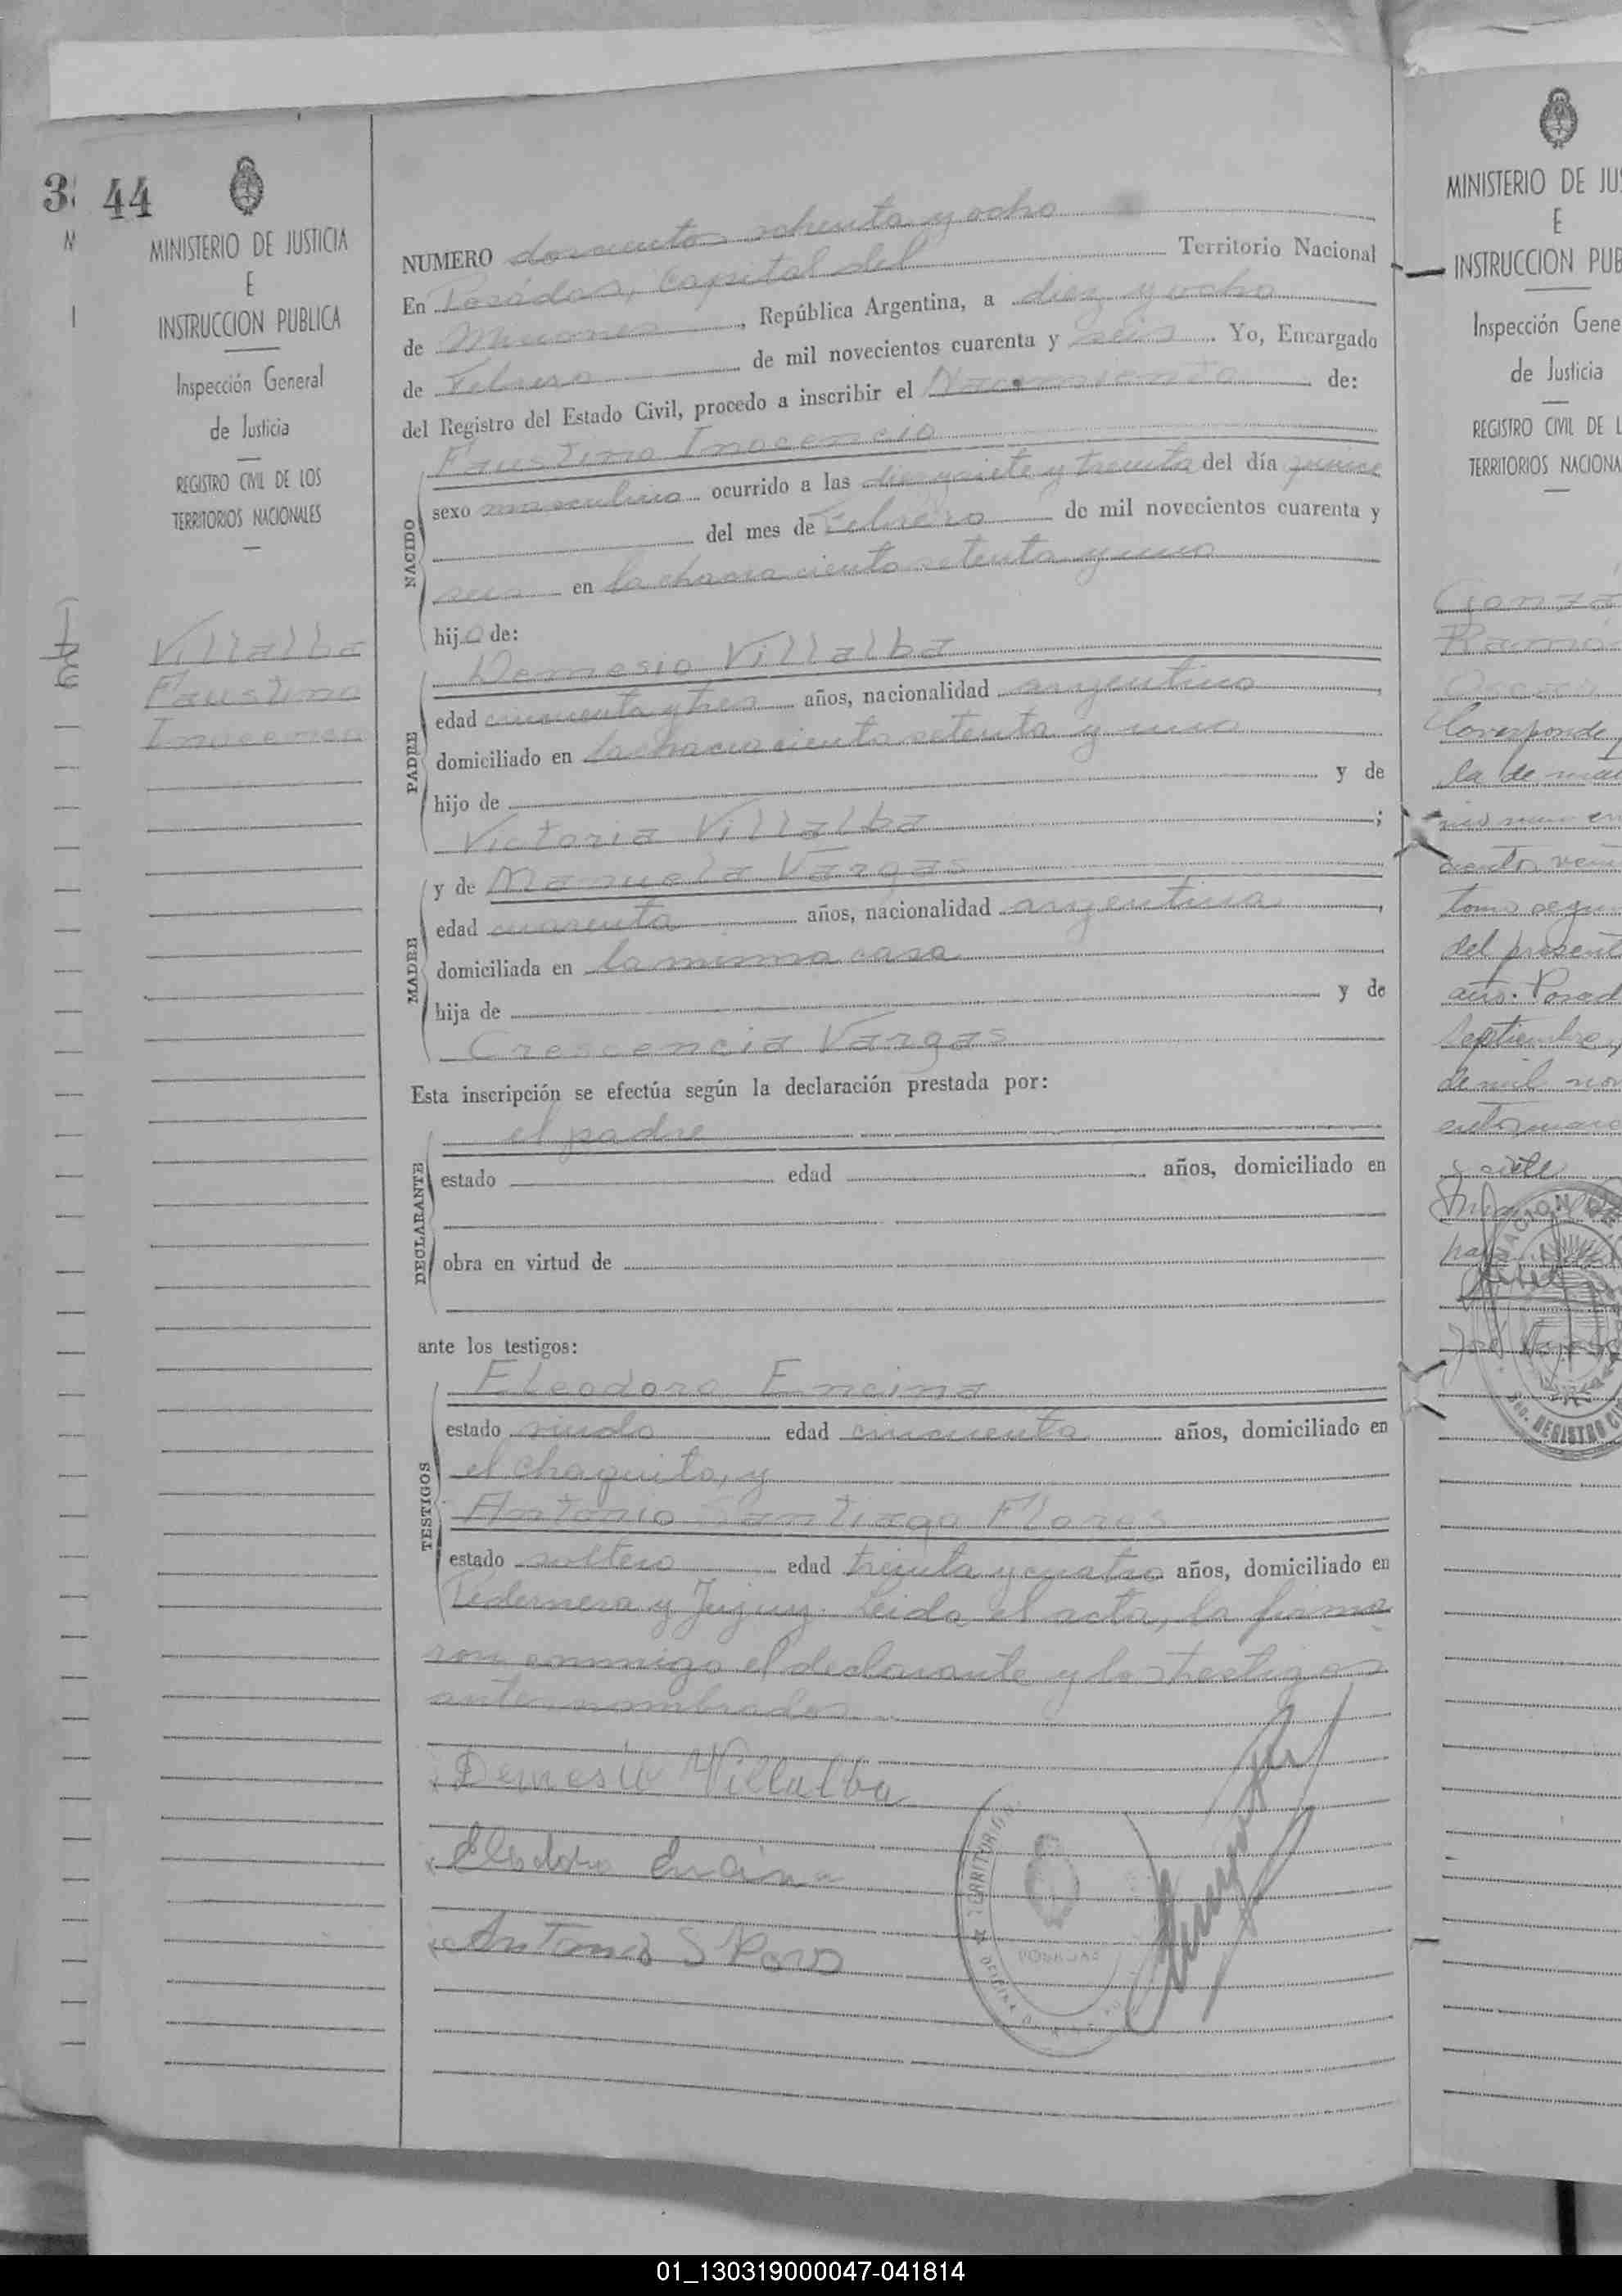 44
MINISTERIO DE JUSTICIA
E
INSTRUCCION PUBLICA
Inspección General
de Justicia
REGISTRO CIVIL DE LOS
TERRITORIOS NACIONALES
Villalba
Faustino
Inocencio
NUMERO doscientos ochenta y ocho
En Posadas, Capital del Territorio Nacional
de Misiones, República Argentina, a diez y ocho
de Febrero de mil novecientos cuarenta y seis. Yo, Encargado
del Registro del Estado Civil, procedo a inscribir el Nacimiento de:
NACIDO
Faustino Inocencio
sexo masculino ocurrido a las diez y siete y treinta del día quince
del mes de Febrero de mil novecientos cuarenta y
seis en la chacra ciento setenta y uno
hijo de:
PADRE
Demesio Villalba
edad cincuenta y tres años, nacionalidad argentino,
domiciliado en la chacra ciento setenta y uno
hijo de y de
Victoria Villalba ;
MADRE
y de Manuela Vargas
edad cuarenta años, nacionalidad argentina,
domiciliada en la misma casa
hija de y de
Crescencia Vargas
Esta inscripción se efectúa según la declaración prestada por:
DECLARANTE
el padre
estado edad años, domiciliado en
obra en virtud de
ante los testigos:
TESTIGOS
Eleodoro Encina
estado viudo edad cincuenta años, domiciliado en
el chaquito, y
Antonio Santiago Flores
estado soltero edad treinta y cuatro años, domiciliado en
Pedernera y Jujuy. Leida el acta, la firma-
ron conmigo el declarante y los testigos
antes nombrados.
Demesio Villalba
Eleodoro Encina
Antonio S Flores
TERRITORIOS
POSADAS
MINISTERIO DE JUS
E
INSTRUCCION PUB
Inspección Gene
de Justicia
REGISTRO CIVIL DE L
TERRITORIOS NACIONA
Gonzá
Ramó
Corresponde
la de
tomo segun
del present
año. Posad
Septiembre,
de mil nov
y siete
REGISTRO
01_130319000047-041814